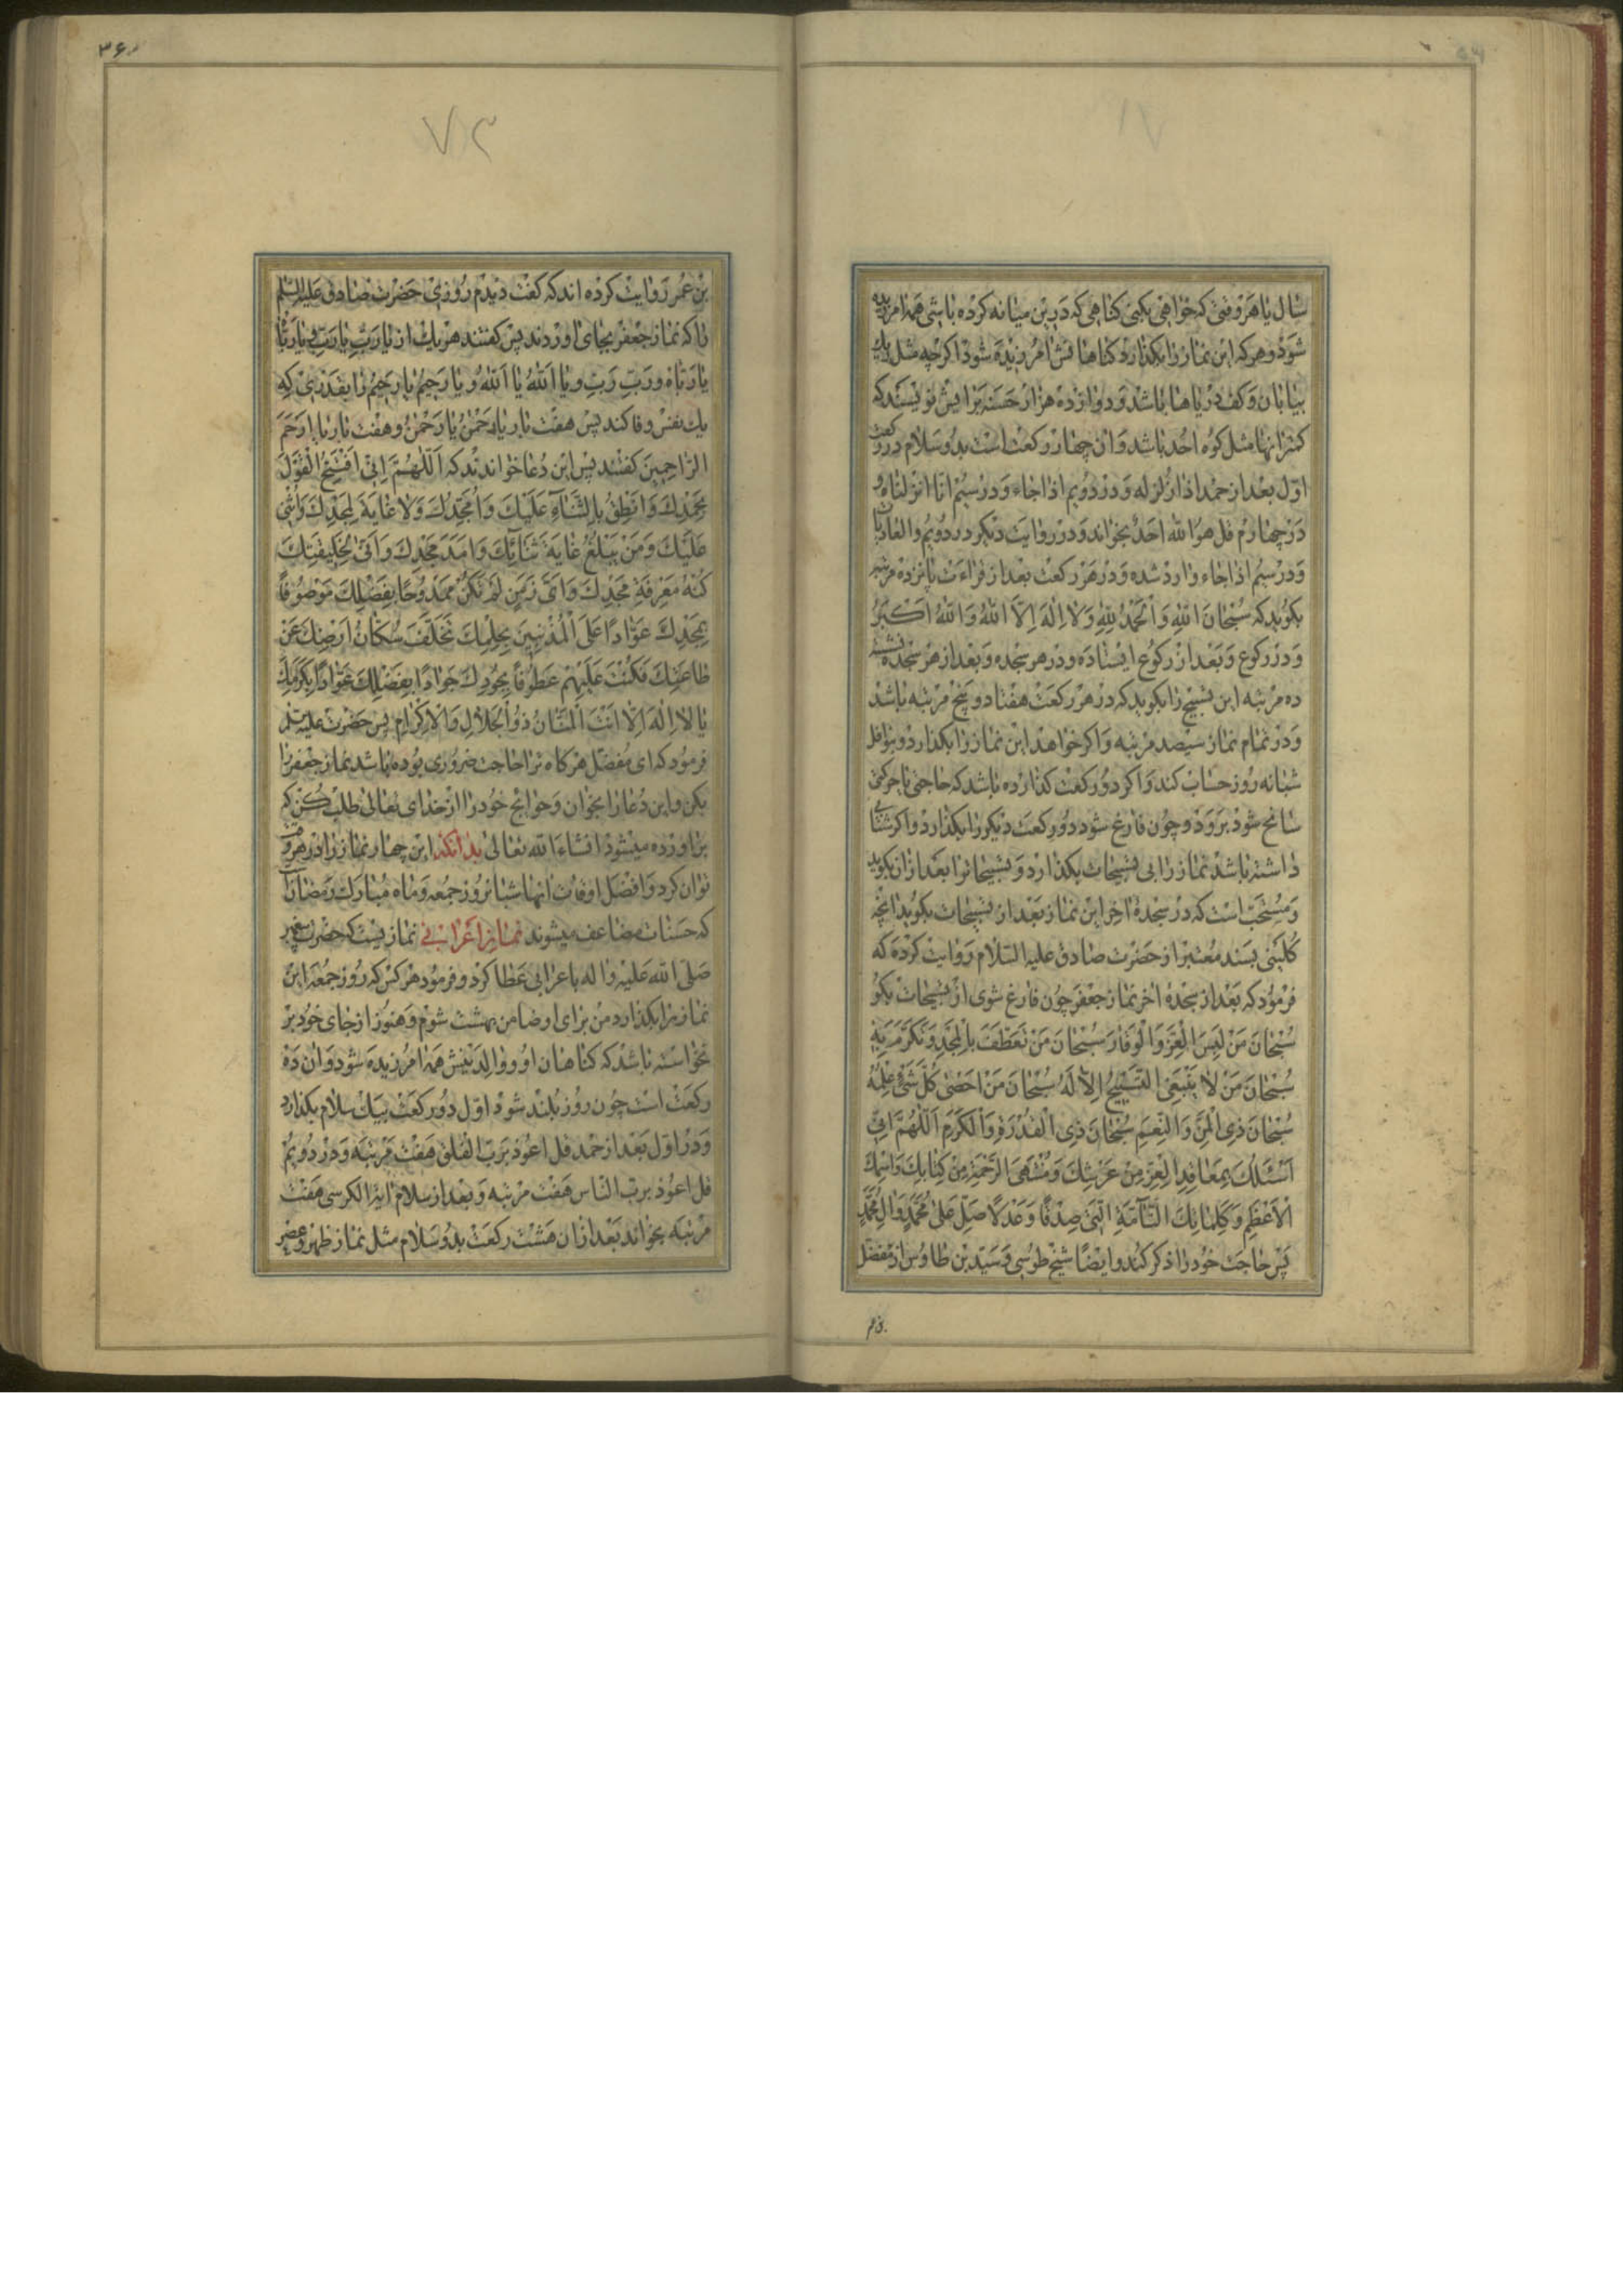 سال یا هر وقتی که خواهی بکنی کناهی که درین میانه کرده باشی همه امرزیده
شود و هر که این نماز را بکذارد کناهانش امرزیده شود اکر چه مثل ریک
بیابان و کف دریاها باشد و دوازده هزار حسنه برایش نویسند که
کمتر انها مثل کوه احد باشد و ان چهار رکعت است بدو سلام در رکعت
اول بعد از حمد اذا زلزله و در دویم اذا جاء و در سیم انا انزلناه و
در چهارم قل هو الله احد بخواند و در روایت دیکر در دویم والعادیات
و در سیم اذا جاء وارد شده و در هر رکعت بعد از قراءت پانزده مرتبه
بکوید که سُبْحانَ اللهِ وَالْحَمْدُ لِلّهِ وَلا اِلهَ اِلاَّ اللهُ وَاللهُ اَکْبَرُ
و در رکوع و بعد از رکوع ایستاده و در هر سجده و بعد از هر سجده نشسته
ده مرتبه این تسبیح را بکوید که در هر رکعت هفتاد و پنج مرتبه باشد
و در تمام نماز سیصد مرتبه و اکر خواهد این نماز را بکذارد و بنوافل
شبانه روز حساب کند و اکر دو رکعت کذارده باشد که حاجتی یا حرکتی
سانح شود برود و چون فارغ شود دو رکعت دیکر را بکذارد و اکر شتابی
داشته باشد نماز را بی تسبیحات بکذارد و تسبیحات را بعد از ان بکوید
و مستحب است که در سجدهٔ اخر این نماز بعد از تسبیحات بکوید انچه
کلینی بسند معتبر از حضرت صادق علیه السلام روایت کرده که
فرمود که بعد از سجدهٔ اخر نماز جعفر چون فارغ شوی از تسبیحات بکو
سُبْحانَ مَنْ لَبِسَ الْعِزَّ وَالْوَقارَ سُبْحانَ مَنْ تَعَطَّفَ بِالْمَجْدِ وَتَکَرَّمَ بِهِ
سُبْحانَ مَنْ لا یَنْبَغِی التَّسْبیحُ اِلاَّ لَهُ سُبْحانَ مَنْ اَحْصی کُلَّ شَیْءٍ عِلْمُهُ
سُبْحانَ ذِی الْمَنِّ وَالنِّعَمِ سُبْحانَ ذِی الْقُدْرَةِ وَالْکَرَمِ اَللّهُمَّ اِنّی
اَسْئَلُکَ بِمَعاقِدِ الْعِزِّ مِنْ عَرْشِکَ وَمُنْتَهَی الرَّحْمَةِ مِنْ کِتابِکَ وَاسْمِکَ
الْاَعْظَمِ وَکَلِماتِکَ التَّامَّةِ الَّتی صِدْقًا وَعَدْلًا صَلِّ عَلی مُحَمَّدٍ وَالِ مُحَمَّدٍ
پس حاجت خود را ذکر کند و ایضًا شیخ طوسی و سید بن طاوس از مفضل
بن عمر
۳۶
۷۲
بن عمر روایت کرده اند که کفت دیدم روزی حضرت صادق علیه السلم
را که نماز جعفر بجای اوردند پس کفتند هر یک از یا رَبِّ یا رَبِّ و یا رَبّاه
یا رَبّاه و رَبِّ رَبِّ و یا اَللهُ یا اَللهُ و یا رَحیمُ یا رَحیمُ را بقدری که
یک نفس وفا کند پس هفت بار یا رَحْمنُ یا رَحْمنُ و هفت بار یا اَرْحَمَ
الرّاحِمینَ کفتند پس این دعا خواندند که اَللّهُمَّ اِنّی اَفْتَتِحُ الْقَوْلَ
بِحَمْدِکَ وَاَنْطِقُ بِالثَّناءِ عَلَیْکَ وَاُمَجِّدُکَ وَلا غایَةَ لِمَجْدِکَ وَاُثْنی
عَلَیْکَ وَمَنْ یَبْلُغُ غایَةَ ثَنائِکَ وَاَمَدَ مَجْدِکَ وَاَنّی لِخَلیقَتِکَ
کُنْهُ مَعْرِفَةِ مَجْدِکَ وَاَیَّ زَمَنٍ لَمْ تَکُنْ مَمْدُوحًا بِفَضْلِکَ مَوْصُوفًا
بِمَجْدِکَ عَوّادًا عَلَی الْمُذْنِبینَ بِحِلْمِکَ تَخَلَّفَ سُکّانُ اَرْضِکَ عَنْ
طاعَتِکَ فَکُنْتَ عَلَیْهِمْ عَطُوفًا بِجُودِکَ جَوادًا بِفَضْلِکَ عَوّادًا بِکَرَمِکَ
یا لا اِلهَ اِلّا اَنْتَ الْمَنّانُ ذُو الْجَلالِ وَالْاِکْرامِ پس حضرت علیه السلم
فرمود که ای مفضل هر کاه ترا حاجت ضروری بوده باشد نماز جعفر را
بکن و این دعا را بخوان و حوایج خود را از خدای تعالی طلب کن که
براورده میشود انشاءالله تعالی بدانکه این چهار نماز را در هر وقت
توان کرد و افضل اوقات انها شبانروز جمعه و ماه مبارک رمضانست
که حسنات مضاعف میشوند نماز اعرابی نمازیست که حضرت پیغمبر
صلی الله علیه واله باعرابی عطا کرد و فرمود هر کس که روز جمعه این
نماز را بکذارد من برای او ضامن بهشت شوم و هنوز از جای خود بر
نخواسته باشد که کناهان او و والدینش همه امرزیده شود و ان ده
رکعت است چون روز بلند شود اول دو رکعت بیک سلام بکذارد
و در اول بعد از حمد قل اعوذ برب الفلق هفت مرتبه و در دویم
قل اعوذ برب الناس هفت مرتبه و بعد از سلام ایة الکرسی هفت
مرتبه بخواند بعد از ان هشت رکعت بدو سلام مثل نماز ظهر و عصر